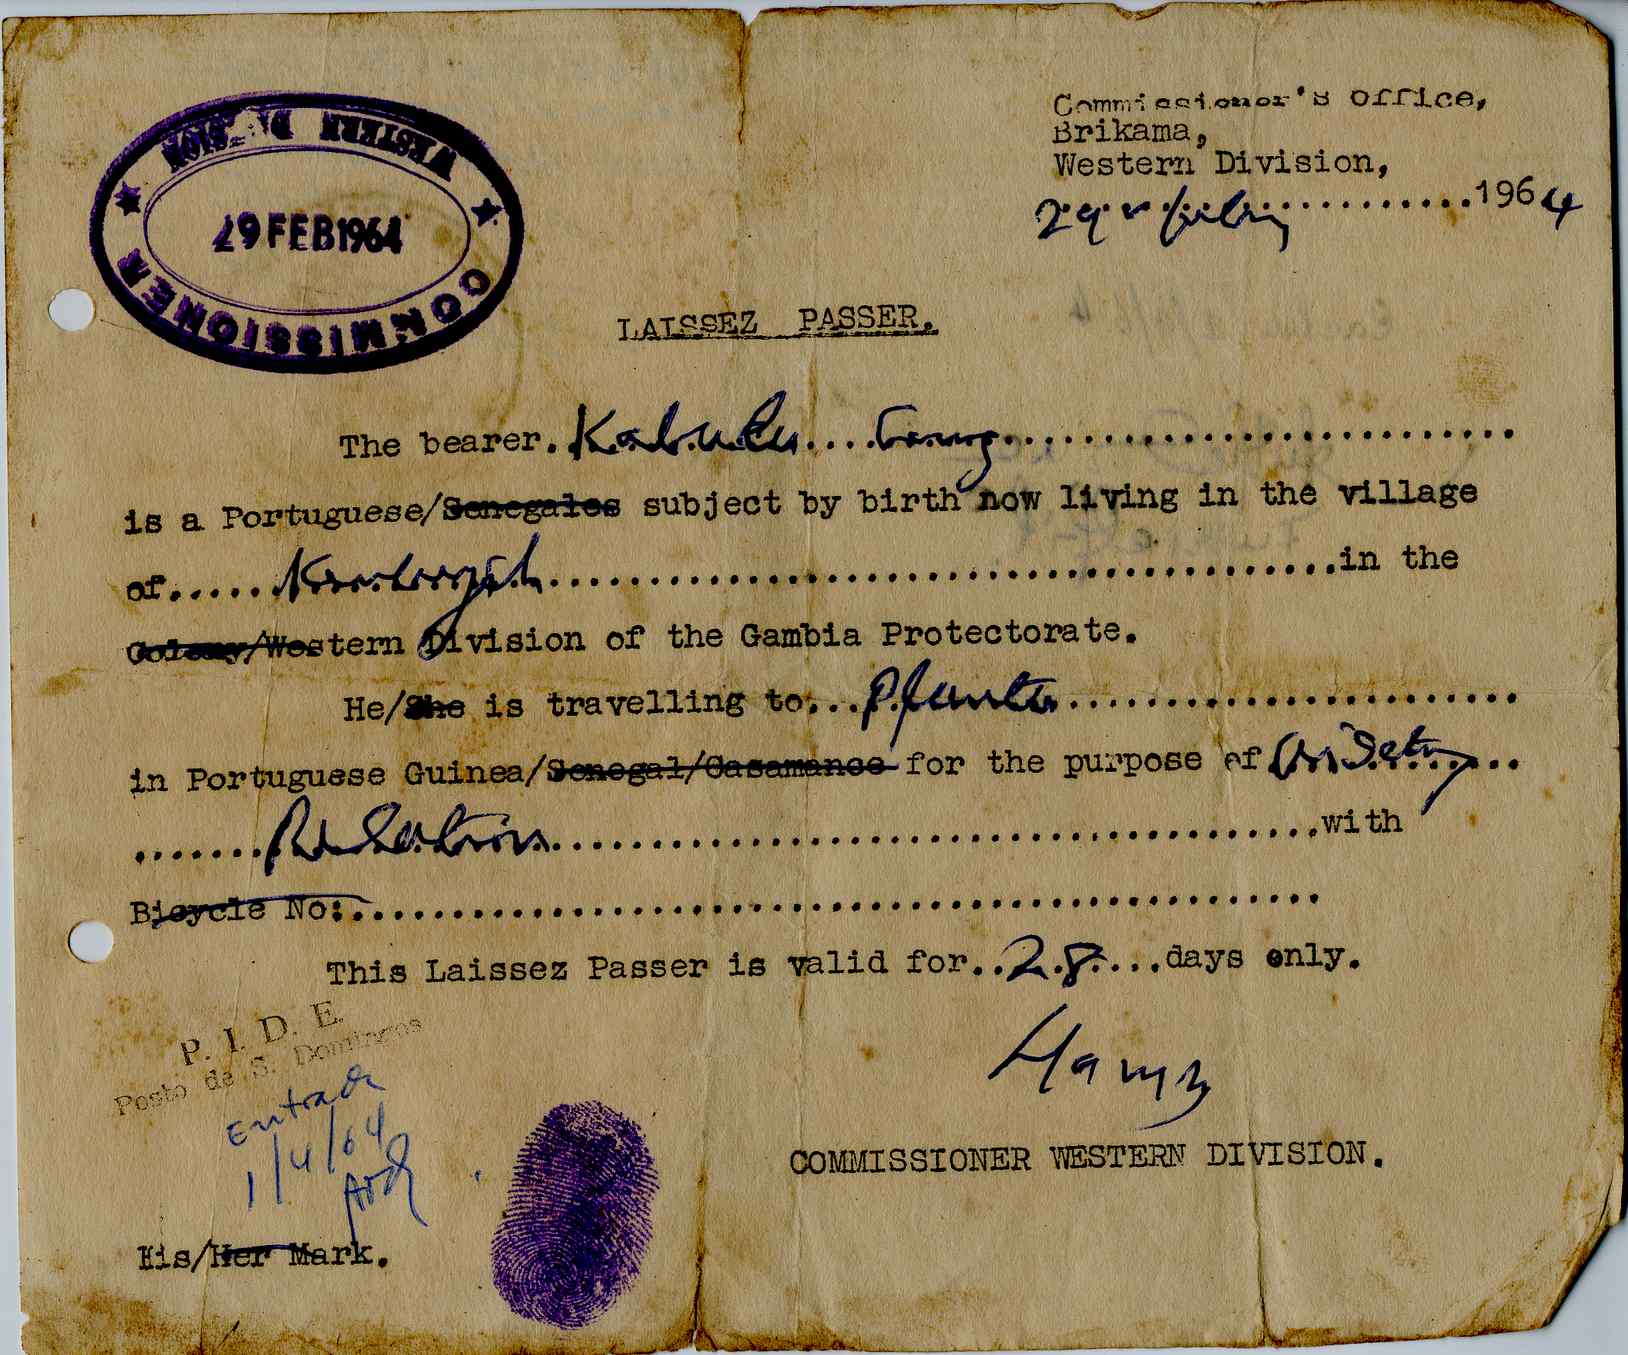 WESTERN DIVISION
29 FEB 1964
COMMISSIONER
Commissioner's Office,
Brikama,
Western Division,
29 ....................1964
LAISSEZ PASSER.
The bearer. Kabuku....
is a Portuguese/Senegales subject by birth now living in the village
of..........................................in the
Colony/Western Division of the Gambia Protectorate.
He/She is travelling to...........................
in Portuguese Guinea/Senegal/Casamance for the purpose of
.......Relation.......................................with
Bicycle No:..................................................
This Laissez Passer is valid for..28....days only.
COMMISSIONER WESTERN DIVISION.
P. I. D. E.
Posto de S. Domingos
Entrada
1/4/64
His/Her Mark.